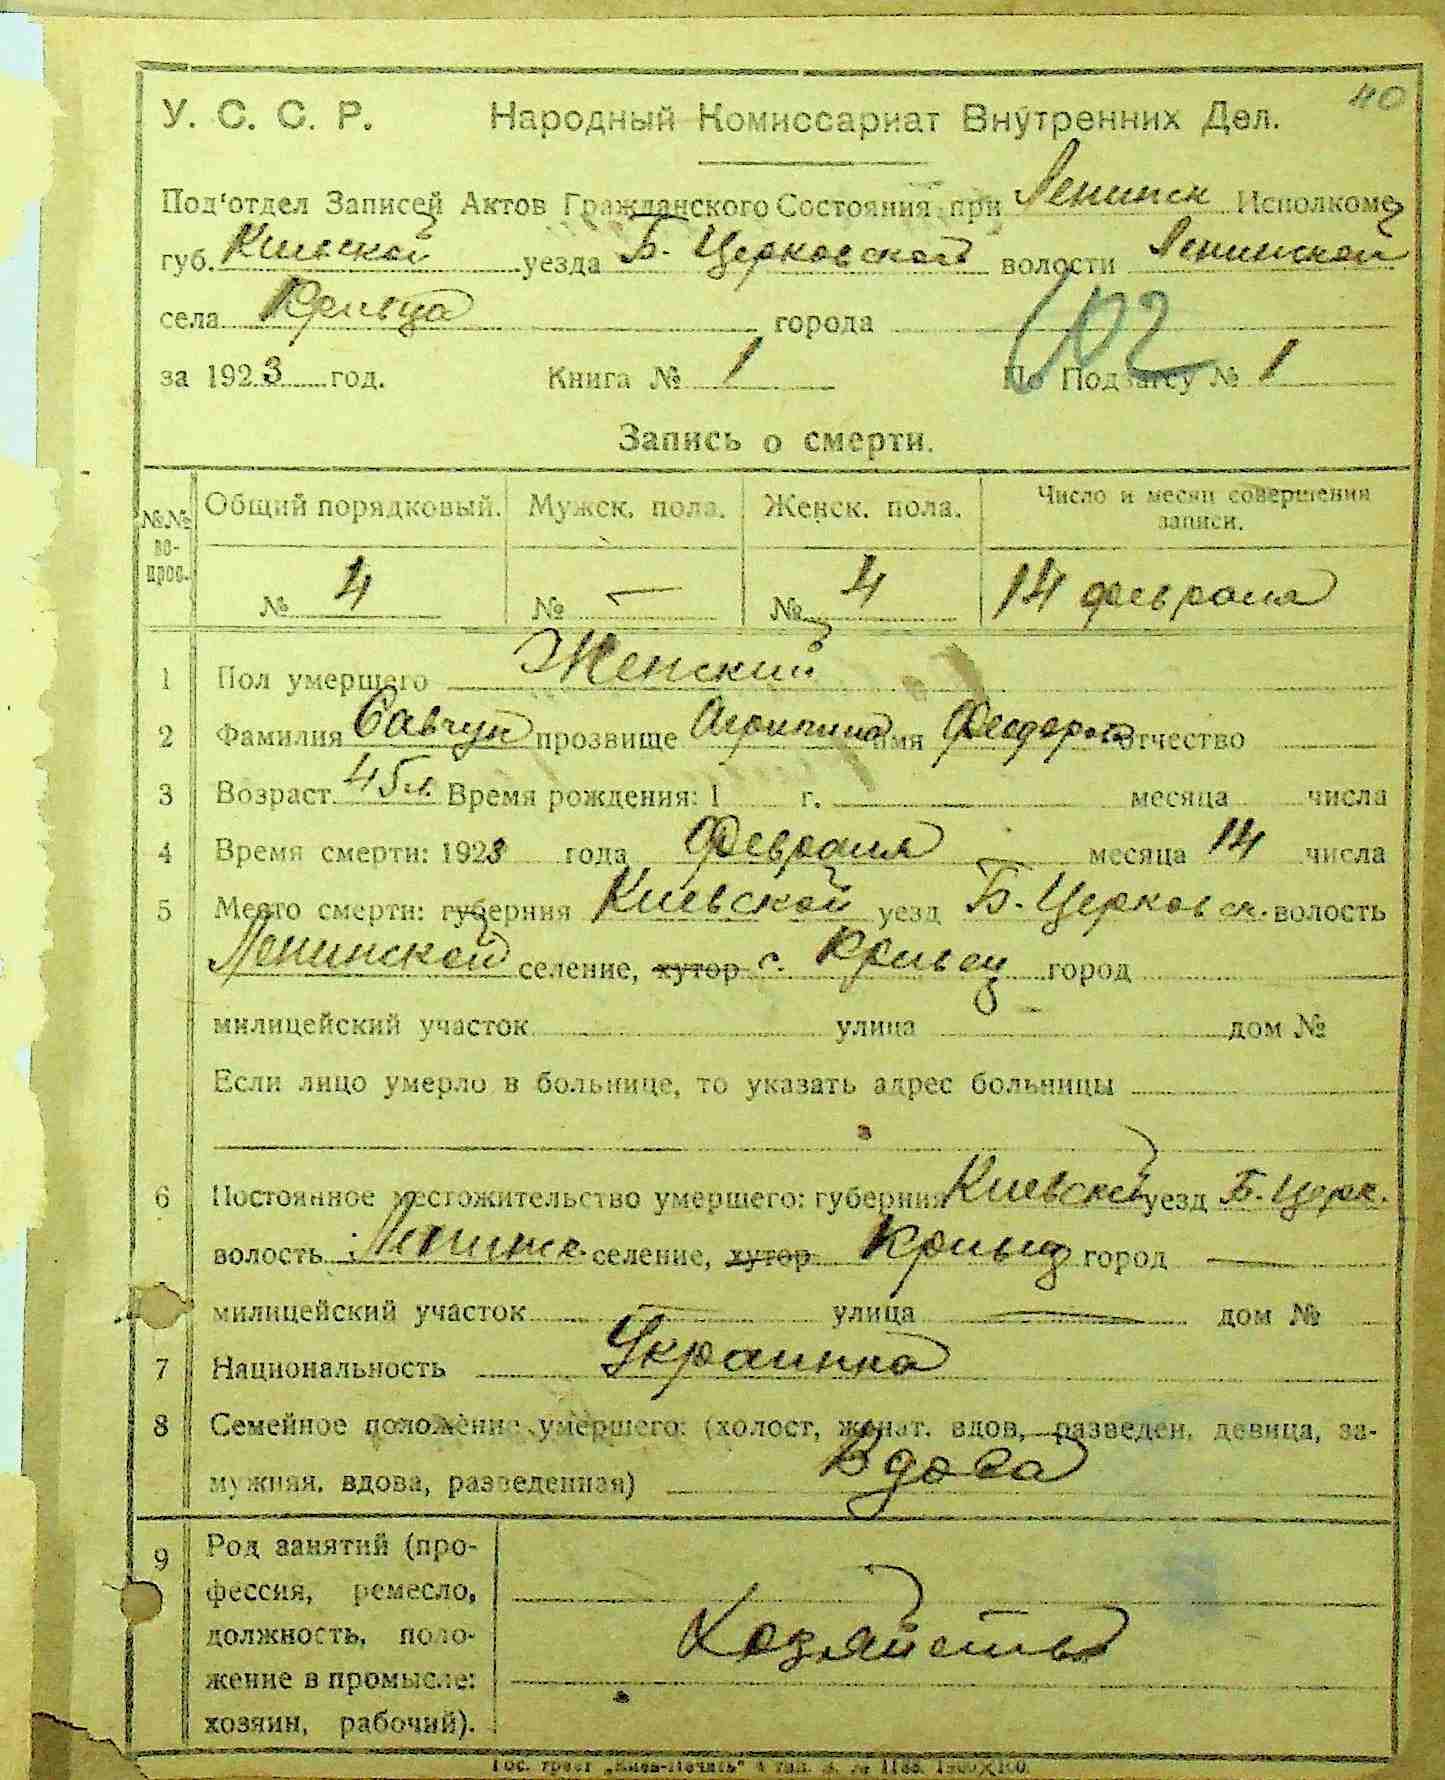 40
У. С. С. Р. Народный Комиссариат Внутренних Дел.
Под'отдел Записей Актов Гражданского Состояния при Ленинск Исполкоме
губ. Киевской уезда Б. Церковской волости Ленинской
села Кривца города
102
за 1923 год. Книга № 1 По Подзагсу № 1
Запись о смерти.
№№ во- прос. Общий порядковый. Мужск. пола. Женск. пола. Число и месяц совершения записи.
№ 4 № — № 4 14 февраля
1 Пол умершего Женский
2 Фамилия Савчук прозвище Агрипина имя Феодоров отчество
3 Возраст 45 л. Время рождения: 1 г. месяца числа
4 Время смерти: 1923 года Февраля месяца 14 числа
5 Место смерти: губерния Киевской уезд Б. Церковск. волость
Ленинской селение, хутор с. Кривец город
милицейский участок улица дом №
Если лицо умерло в больнице, то указать адрес больницы
6 Постоянное местожительство умершего: губерния Киевской уезд Б. Церк.
волость Ленинск. селение, хутор Кривец город —
милицейский участок — улица — дом №
7 Национальность Украинка
8 Семейное положение умершего: (холост, женат, вдов, разведен, девица, за-
мужняя, вдова, разведенная) Вдова
9 Род занятий (про-
фессия, ремесло,
должность, поло- Хозяйство
жение в промысле:
хозяин, рабочий).
Гос. трест „Киев-Печать" 4 тип. З. № 1188. 1900×100.